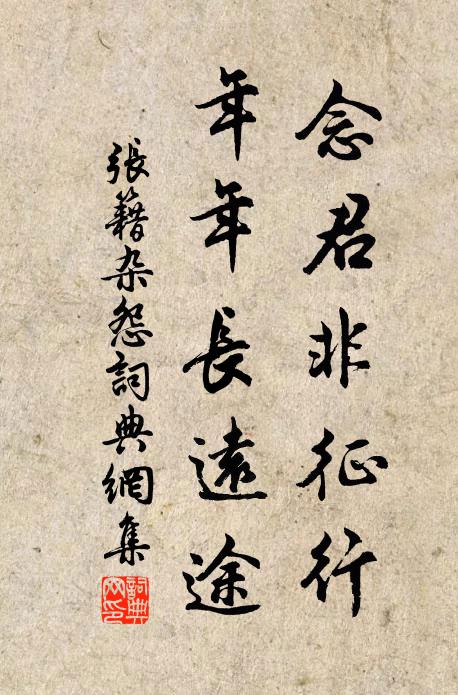 念君非征行
年年長遠途
張籍杂怨詞典網集
詞典网印